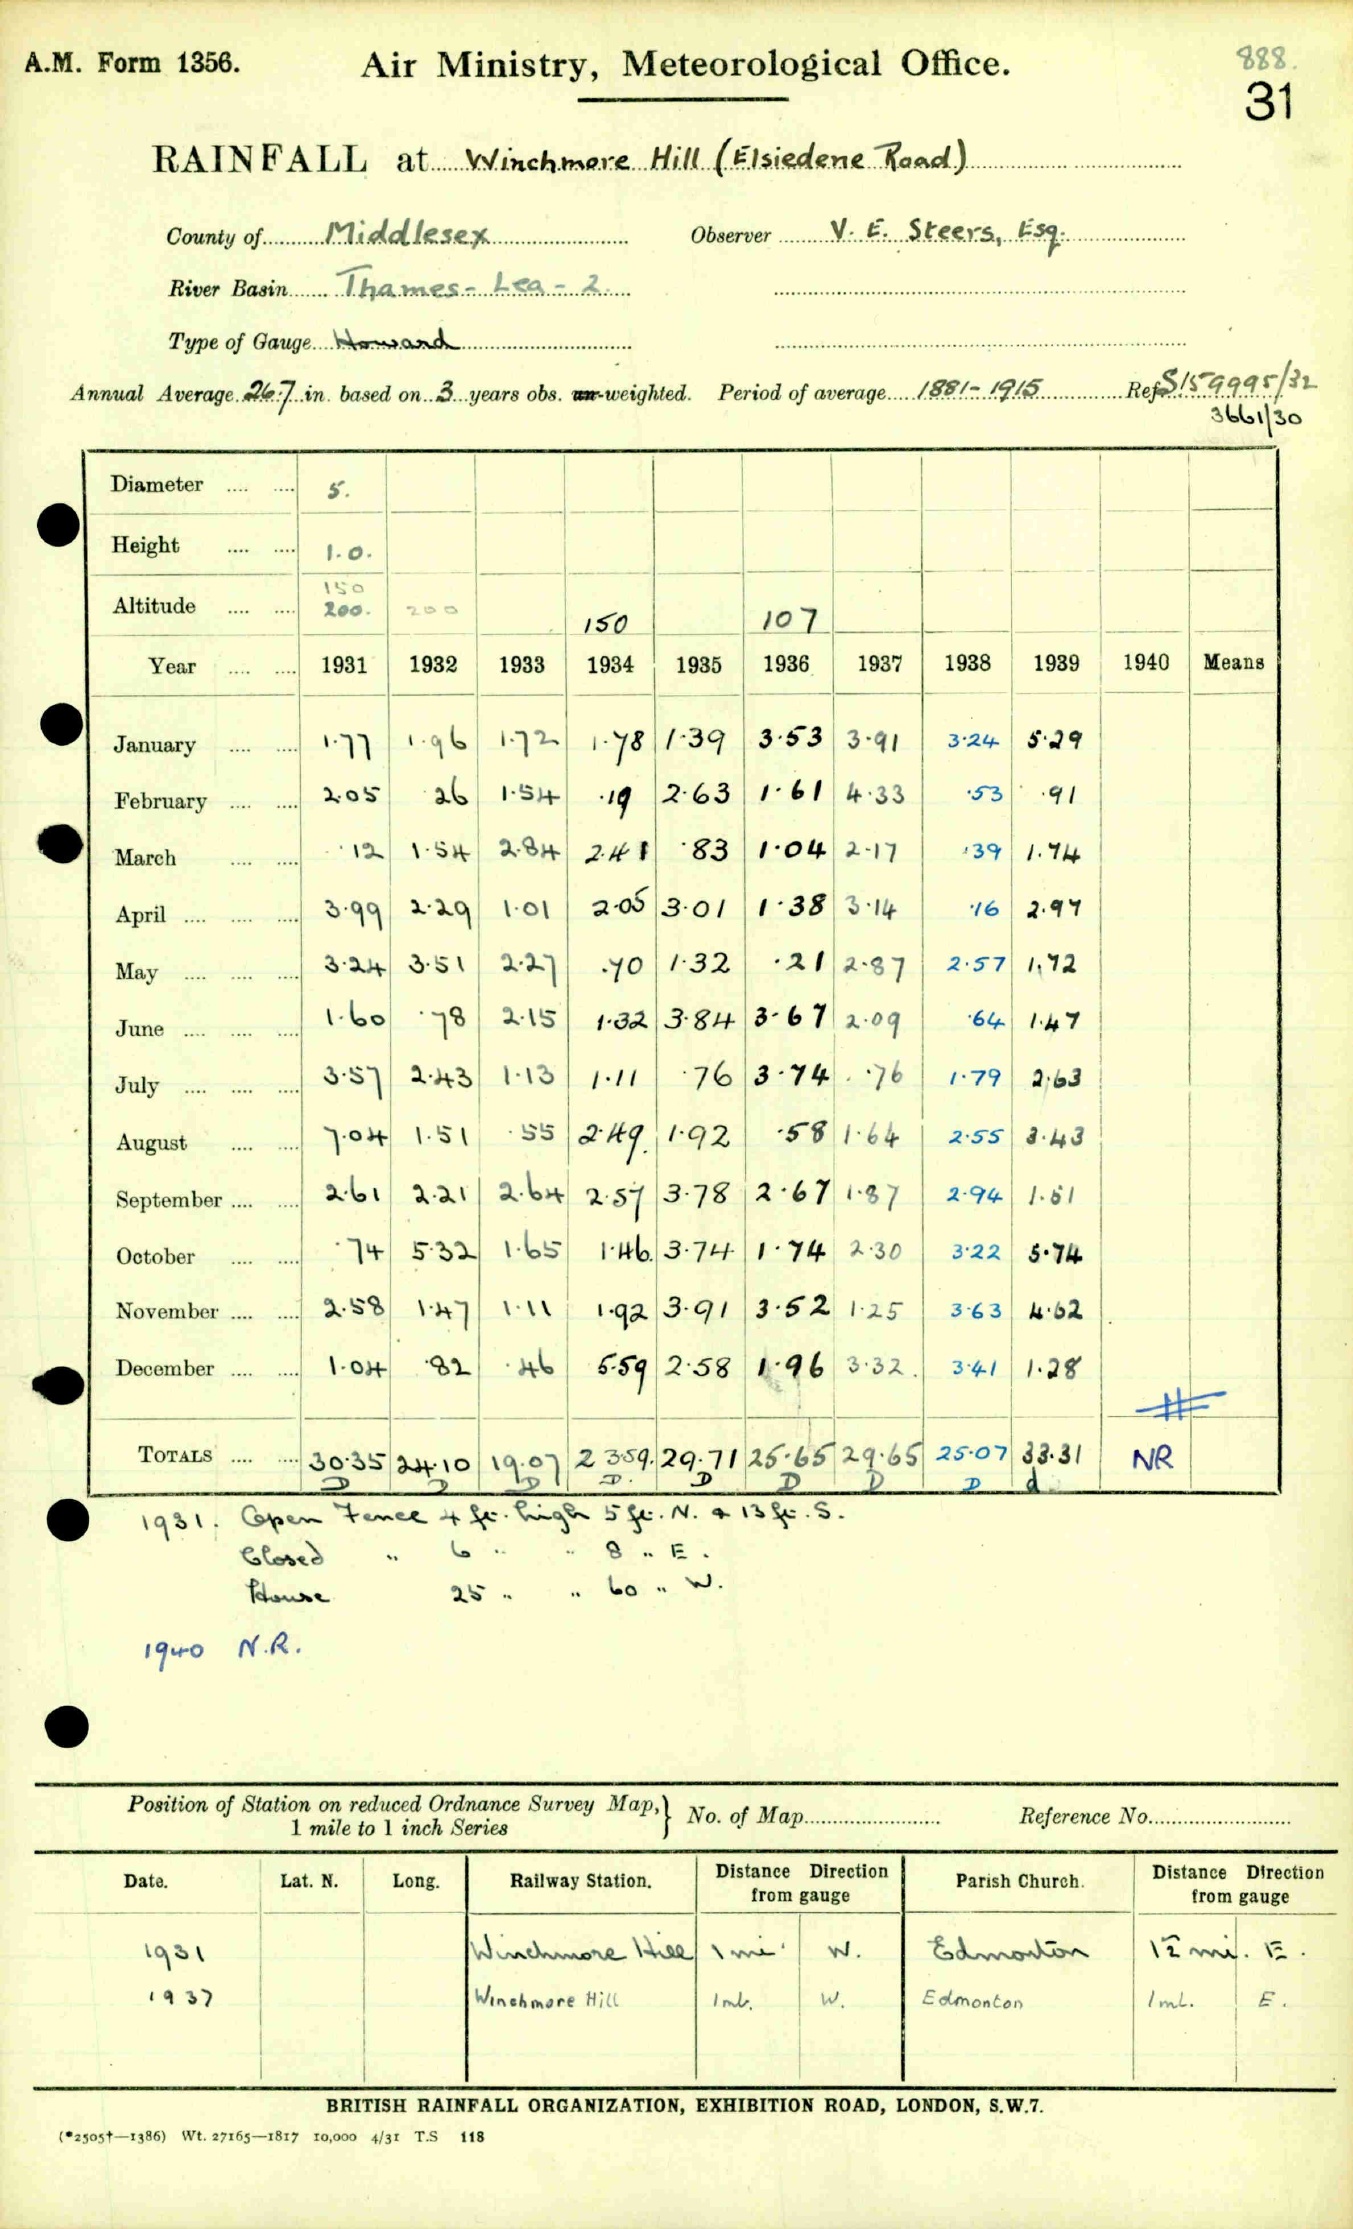 888.
A.M. Form 1356. Air Ministry, Meteorological Office. 31
RAINFALL at Winchmore Hill (Elsiedene Road)
County of Middlesex Observer V. E. Steers, Esq.
River Basin Thames - Lea - 2.
Type of Gauge Howard
Annual Average 26.7 in. based on 3 years obs. un-weighted. Period of average 1881-1915 Ref. S159995/32
3661/30
Diameter 5.
Height 1.0.
150
Altitude 200. 200 150 107
Year 1931 1932 1933 1934 1935 1936 1937 1938 1939 1940 Means
January 1.77 1.96 1.72 1.78 1.39 3.53 3.91 3.24 5.29
February 2.05 .26 1.54 .19 2.63 1.61 4.33 .53 .91
March .12 1.54 2.84 2.41 .83 1.04 2.17 .39 1.74
April 3.99 2.29 1.01 2.05 3.01 1.38 3.14 .16 2.97
May 3.24 3.51 2.27 .70 1.32 .21 2.87 2.57 1.72
June 1.60 .78 2.15 1.32 3.84 3.67 2.09 .64 1.47
July 3.57 2.43 1.13 1.11 .76 3.74 .76 1.79 2.63
August 7.04 1.51 .55 2.49 1.92 .58 1.64 2.55 3.43
September 2.61 2.21 2.64 2.57 3.78 2.67 1.87 2.94 1.51
October .74 5.32 1.65 1.46 3.74 1.74 2.30 3.22 5.74
November 2.58 1.47 1.11 1.92 3.91 3.52 1.25 3.63 4.62
December 1.04 .82 .46 5.59 2.58 1.96 3.32 3.41 1.28
TOTALS 30.35 24.10 19.07 23.59 29.71 25.65 29.65 25.07 33.31 NR
D D D D D D D D d
1931. Open Fence 4 ft. high 5 ft. N. & 13 ft. S.
Closed " 6 " " 8 " E.
House 25 " " 60 " W.
1940 N.R.
Position of Station on reduced Ordnance Survey Map, 1 mile to 1 inch Series } No. of Map Reference No.
Date. Lat. N. Long. Railway Station. Distance Direction from gauge Parish Church. Distance Direction from gauge
1931 Winchmore Hill 1 mi. W. Edmonton 1½ mi. E.
1937 Winchmore Hill 1 ml. W. Edmonton 1 ml. E.
BRITISH RAINFALL ORGANIZATION, EXHIBITION ROAD, LONDON, S.W.7.
(*2505†—1386) Wt. 27165—1817 10,000 4/31 T.S 118